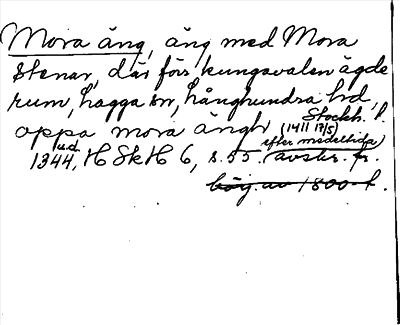 Mora äng, äng med Mora
stenar, där förr kungavalen ägde
rum, Lagga sn, Långhundra hd,
Stockh. l.
oppa mora ängh (1411 17/5)
u.d.
efter medeltida
1344, HSkH 6, s. 55. (avskr. fr.
börj. av 1800-t.